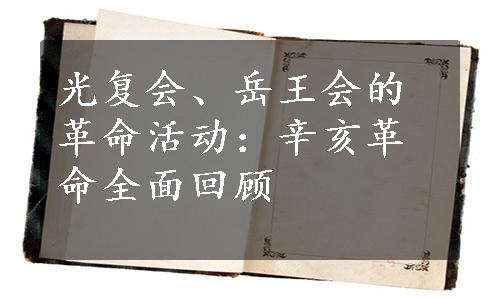 光复会、岳王会的
革命活动：辛亥革
命全面回顾